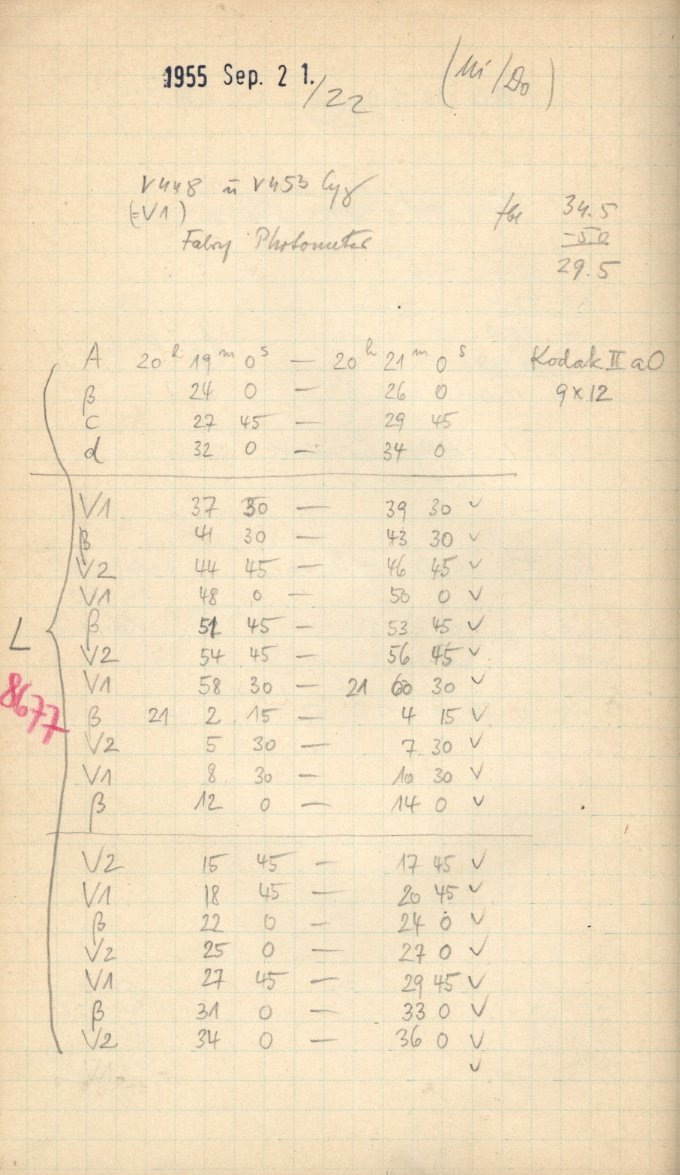 1955 Sep. 21./22 (Mi/Do)
V448 u V453 Cyg
(=V1)
Fabry Photometer
34.5
-5.0
29.5
A 20h 19m 0s — 20h 21m 0s Kodak II aO
β 24 0 — 26 0 9x12
c 27 45 — 29 45
d 32 0 — 34 0
V1 37 30 — 39 30 ✓
β 41 30 — 43 30 ✓
V2 44 45 — 46 45 ✓
V1 48 0 — 50 0 ✓
β 51 45 — 53 45 ✓
V2 54 45 — 56 45 ✓
V1 58 30 — 21 60 30 ✓
β 21 2 15 — 4 15 ✓
V2 5 30 — 7 30 ✓
V1 8 30 — 10 30 ✓
β 12 0 — 14 0 ✓
V2 15 45 — 17 45 ✓
V1 18 45 — 20 45 ✓
β 22 0 — 24 0 ✓
V2 25 0 — 27 0 ✓
V1 27 45 — 29 45 ✓
β 31 0 — 33 0 ✓
V2 34 0 — 36 0 ✓
✓
L
8677